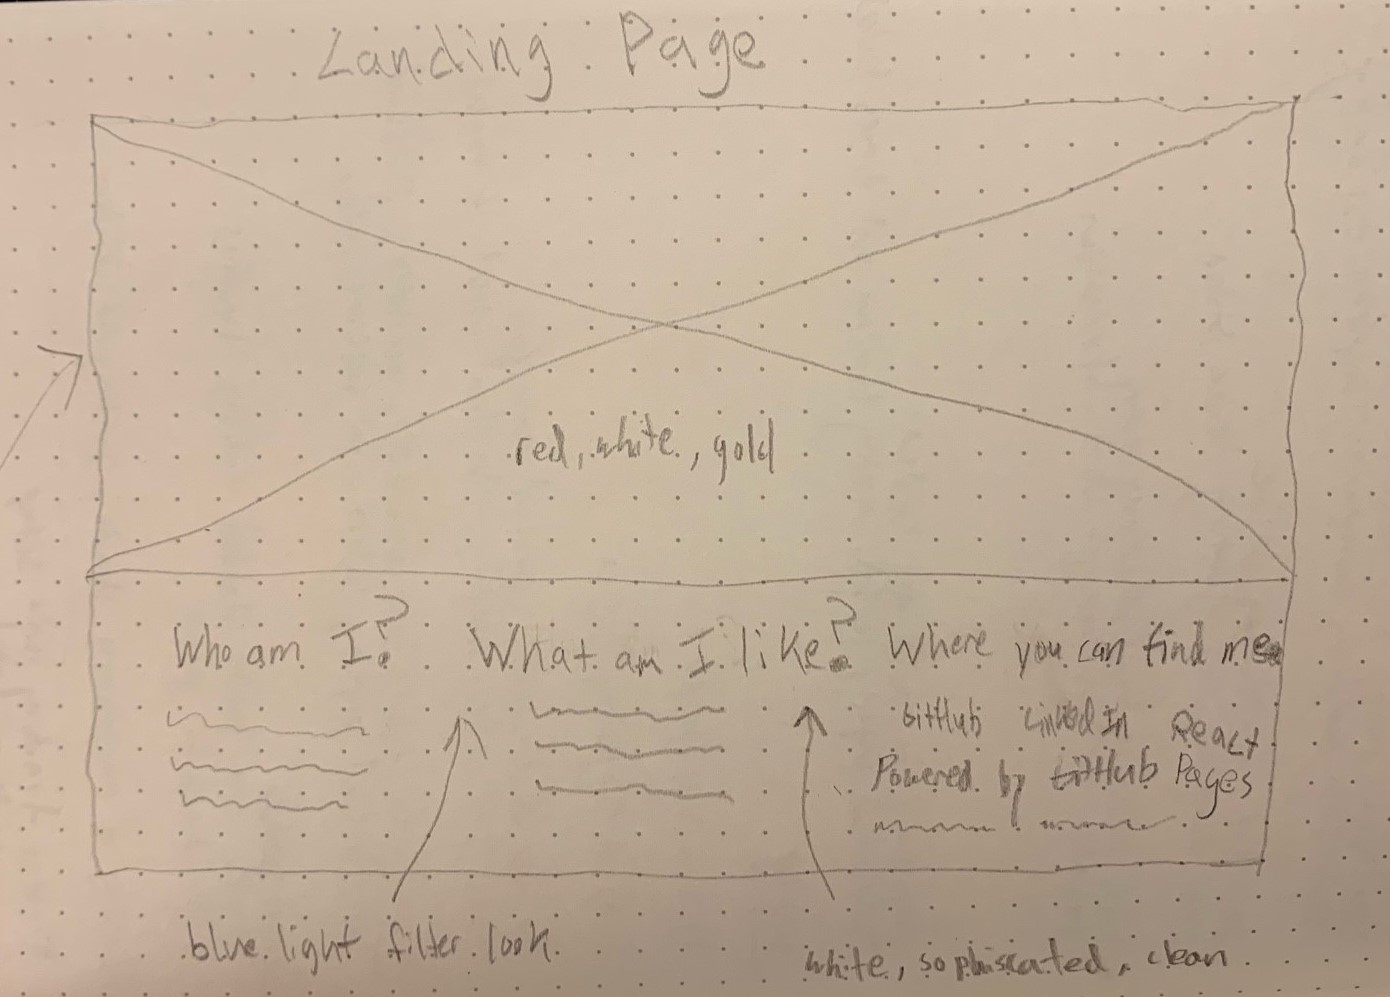 Landing Page
red, white, gold
Who am I? What am I like? Where you can find me
GitHub LinkedIn React
Powered by GitHub Pages
blue light filter look
white, sophiscated, clean